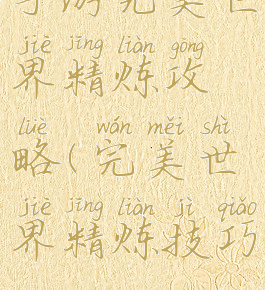 手游完美世
jiè jīng liàn gōng
界精炼攻
lüè wán měi shì
略(完美世
jiè jīng liàn jì qiǎo
界精炼技巧